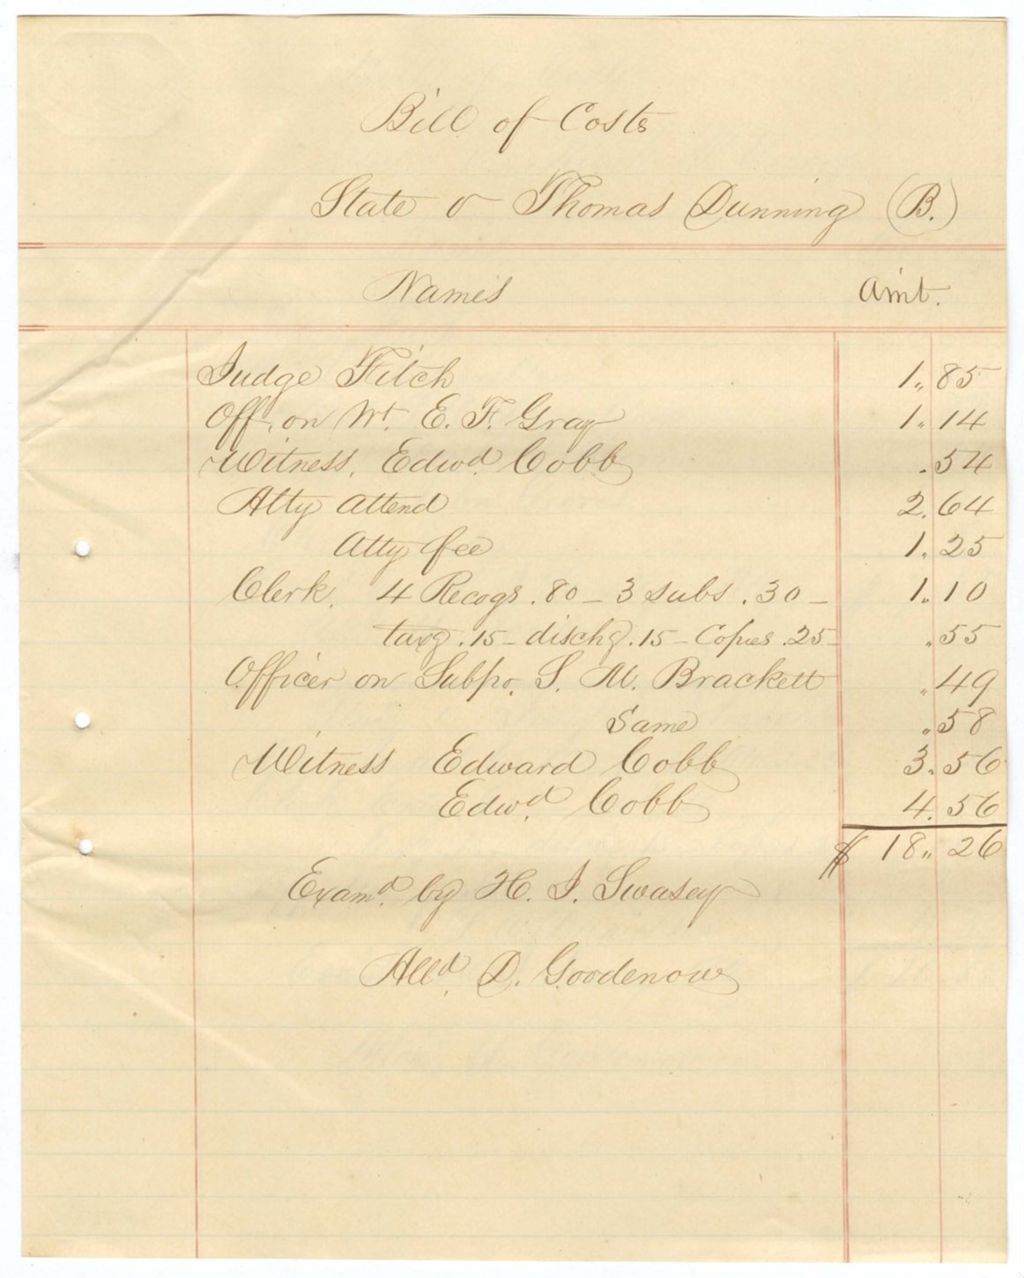 Bill of Costs
State v Thomas Dunning (B.)
Names Amt.
Judge Fitch 1.85
Off. on Wt. E. F. Gray 1.14
Witness, Edwd Cobb .54
Atty attend 2.64
Atty fee 1.25
Clerk, 4 Recogs .80 - 3 subs .30 - 1.10
taxg .15 - dischg .15 - Copies .25 - .55
Officer on Subpo. S. M. Brackett .49
Same .58
Witness Edward Cobb 3.56
Edwd Cobb 4.56
$ 18.26
Examd by H. I. Swasey
Alld D. Goodenow